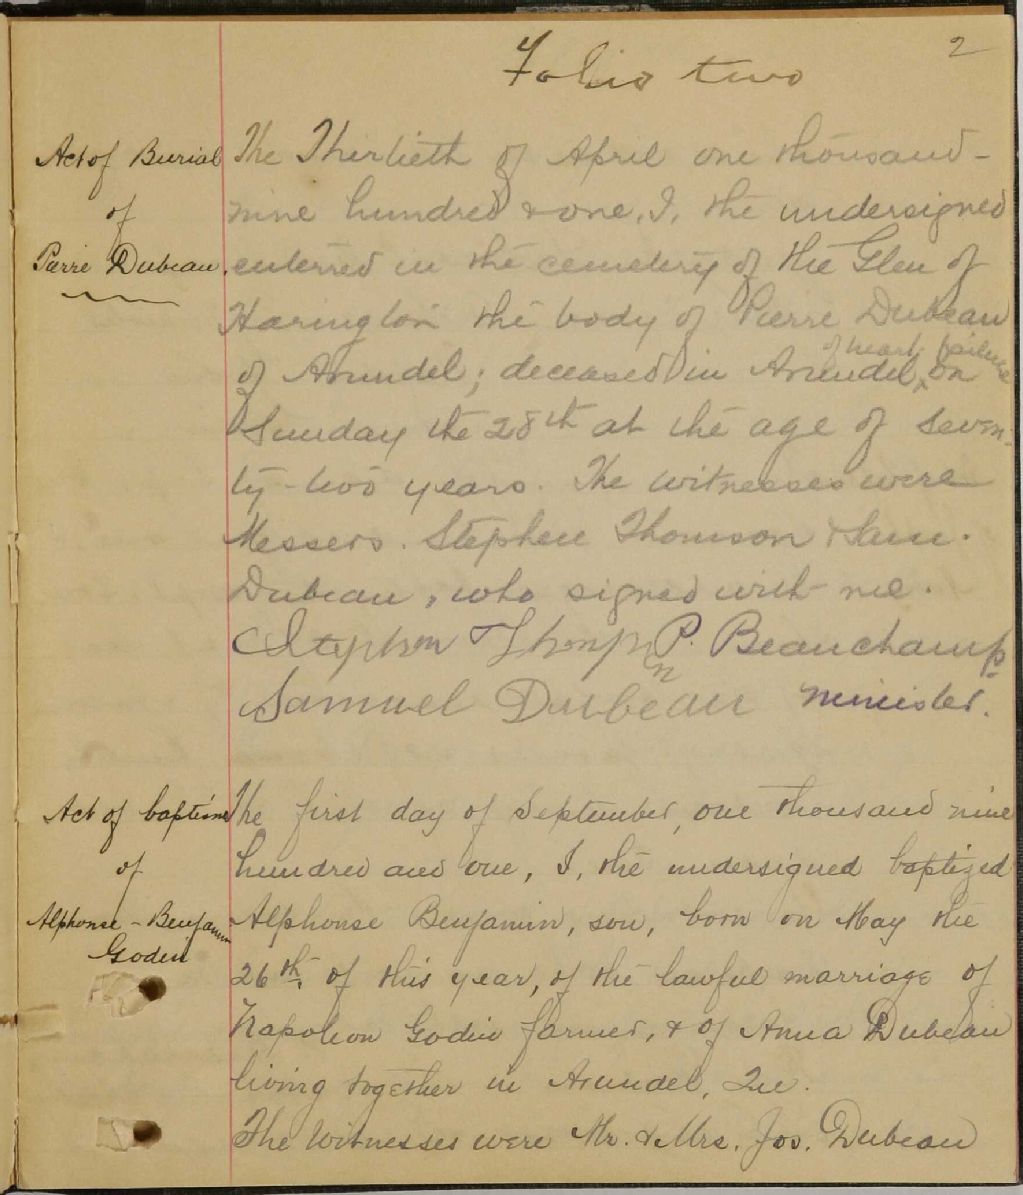 2
Folio two
Act of Burial
of
Pierre Dubeau.
The Thirtieth of April one thousand-
nine hundred & one, I, the undersigned
enterred in the cemetery of the Glen of
Harington the body of Pierre Dubeau
of heart failure
of Arundel; deceased in Arundel, on
Sunday the 28th at the age of seven-
ty-two years. The witnesses were
Messers. Stephen Thomson & Sam.
Dubeau, who signed with me.
Stephen Thompson P. Beauchamp
Samuel Dubeau minister.
Act of baptime
of
Alphonse-Benjamin
Godin
The first day of September, one thousand nine
hundred and one, I, the undersigned baptized
Alphonse Benjamin, son, born on May the
26th. of this year, of the lawful marriage of
Napoleon Godin farmer, & of Anna Dubeau
living together in Arundel, Que.
The Witnesses were Mr. & Mrs. Jos. Dubeau